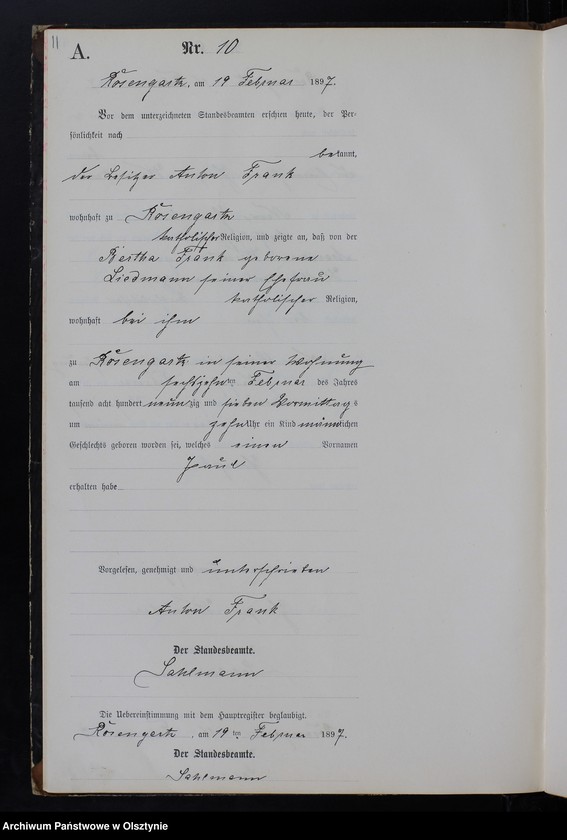 11
A.
Nr. 10
Rosengarth, am 19 Februar 1897.
Vor dem unterzeichneten Standesbeamten erschien heute, der Per-
sönlichkeit nach
bekannt,
der Besitzer Anton Frank
wohnhaft zu Rosengarth
katholischer Religion, und zeigte an, daß von der
Bertha Frank geborene
Liedmann seiner Ehefrau
katholischer Religion,
wohnhaft bei ihm
zu Rosengarth in seiner Wohnung
am sechszehnten Februar des Jahres
tausend acht hundert neunzig und sieben Vormittags
um zehn Uhr ein Kind männlichen
Geschlechts geboren worden sei, welches einen Vornamen
Paul
erhalten habe
Vorgelesen, genehmigt und unterschrieben
Anton Frank
Der Standesbeamte.
Sahlmann
Die Uebereinstimmung mit dem Hauptregister beglaubigt.
Rosengarth, am 19ten Februar 1897.
Der Standesbeamte.
Sahlmann
Archiwum Państwowe w Olsztynie